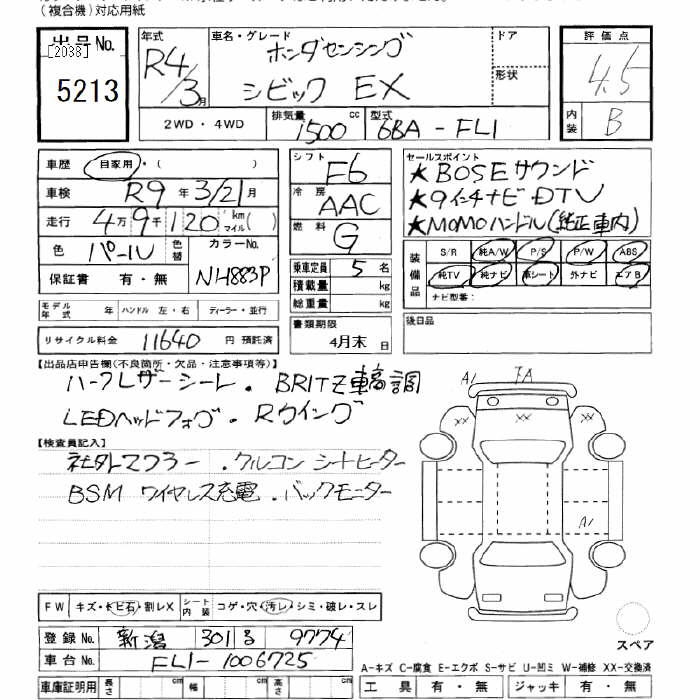 (複合機)対応用紙
出品No.
[2038]
5213
年式
R4/3月
車名・グレード
ホンダセンシング
シビック EX
ドア
形状
評価点
4.5
内装
B
2WD・4WD
排気量
1500 cc
型式
6BA-FL1
車歴
自家用・( )
車検
R9年3/21月
走行
4万9千120 km マイル( )
色
パール
色替
カラーNo.
NH883P
保証書
有・無
シフト
F6
冷房
AAC
燃料
G
乗車定員 5 名
積載量 kg
総重量 kg
セールスポイント
★BOSEサウンド
★9インチナビ DTV
★MOMOハンドル(純正車内)
装備品
S/R 純A/W P/S P/W ABS
純TV 純ナビ 革シート 外ナビ エアB
ナビ型番:
モデル年式 年 ハンドル 左・右 ディーラー・並行
リサイクル料金 11640 円 預託済
書類期限
4月末 日
後日品
【出品店申告欄(不良箇所・欠品・注意事項等)】
ハーフレザーシート. BRITZ車高調
LEDヘッドフォグ. Rウイング
【検査員記入】
社外マフラー .クルコン シートヒーター
BSM ワイヤレス充電 .バックモニター
A1
7A
XX
XX
A1
FW
キズ・トビ石・割レX
シート内装
コゲ・穴・汚レ・シミ・破レ・スレ
登録No.
新潟 301 る 9774
車台No.
FL1-1006725
スペア
A-キズ C-腐食 E-エクボ S-サビ U-凹ミ W-補修 XX-交換済
車庫証明用 長さ cm 幅 cm 高さ cm
工具 有・無 ジャッキ 有・無